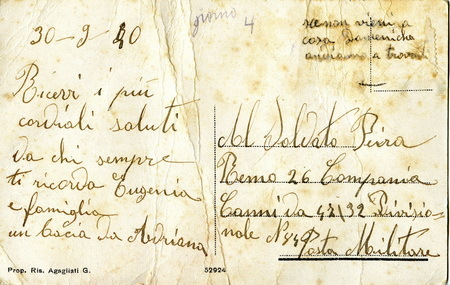 30-9 40
Ricevi i più
cordiali saluti
da chi sempre
ti ricorda Eugenia
e famiglia
un bacia da Adriana
giorno 4
se non vieni a
casa Domenicha
andiamo a trovar
Al Soldato Peira
Remo 26 Compania
Canni da 47/32 Divisio-
nale N°
Posta Militare
Prop. Ris. Agagliati G.
52924